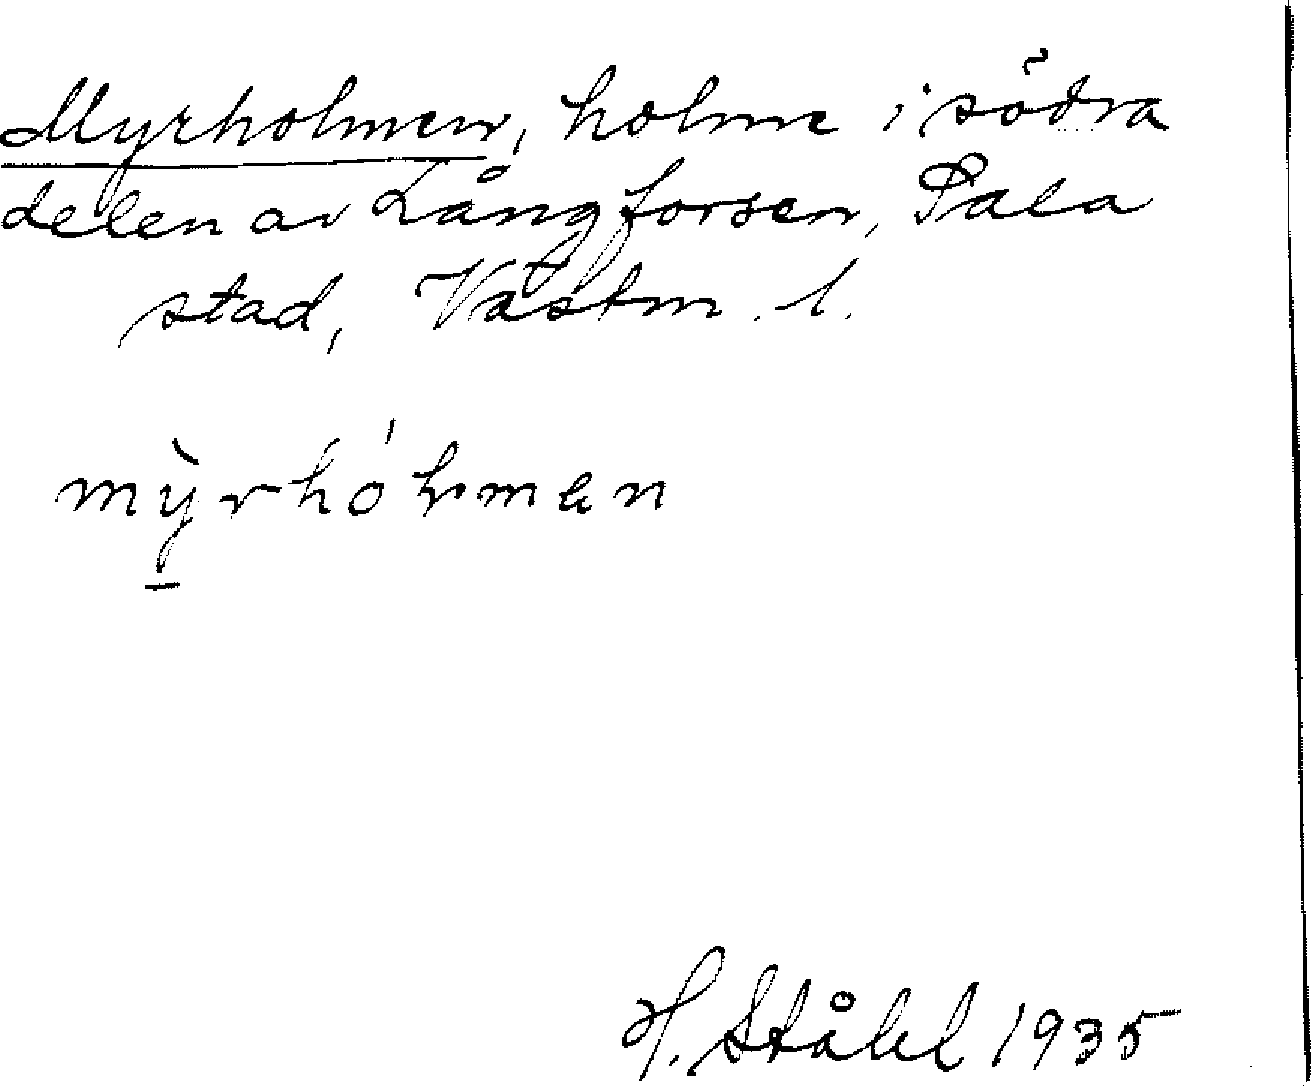 Myrholmen, holme i södra
delen av Långforsen, Sala
stad, Västm. l.
mỳ̱rhól̥mən
H. Ståhl 1935